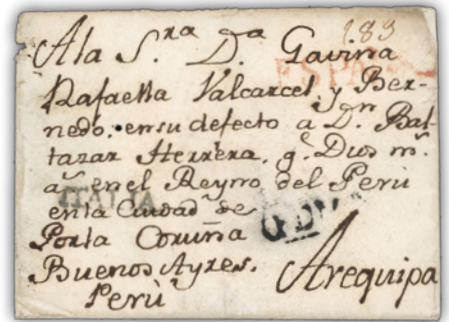 183
A la S.ra D.a Gavina
ESPAÑA
Rafaella Valcarcel, y Ber-
nedo. en su defecto a D.n Bal-
tazar Herrera, q.e Dios m.s
a.s en el Reyno del Perú
ITALIA
en la Ciudad de
Por la Coruña
Buenos Ayres.
Arequipa
Perú